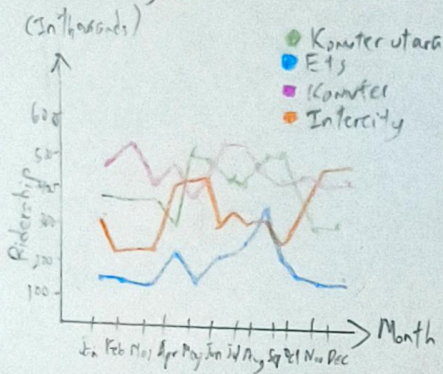 (In Thousands)
Komuter utara
Ets
Komuter
Intercity
Ridership
100
Month
Jan Feb Mar Apr May Jun Jul Aug Sep Oct Nov Dec